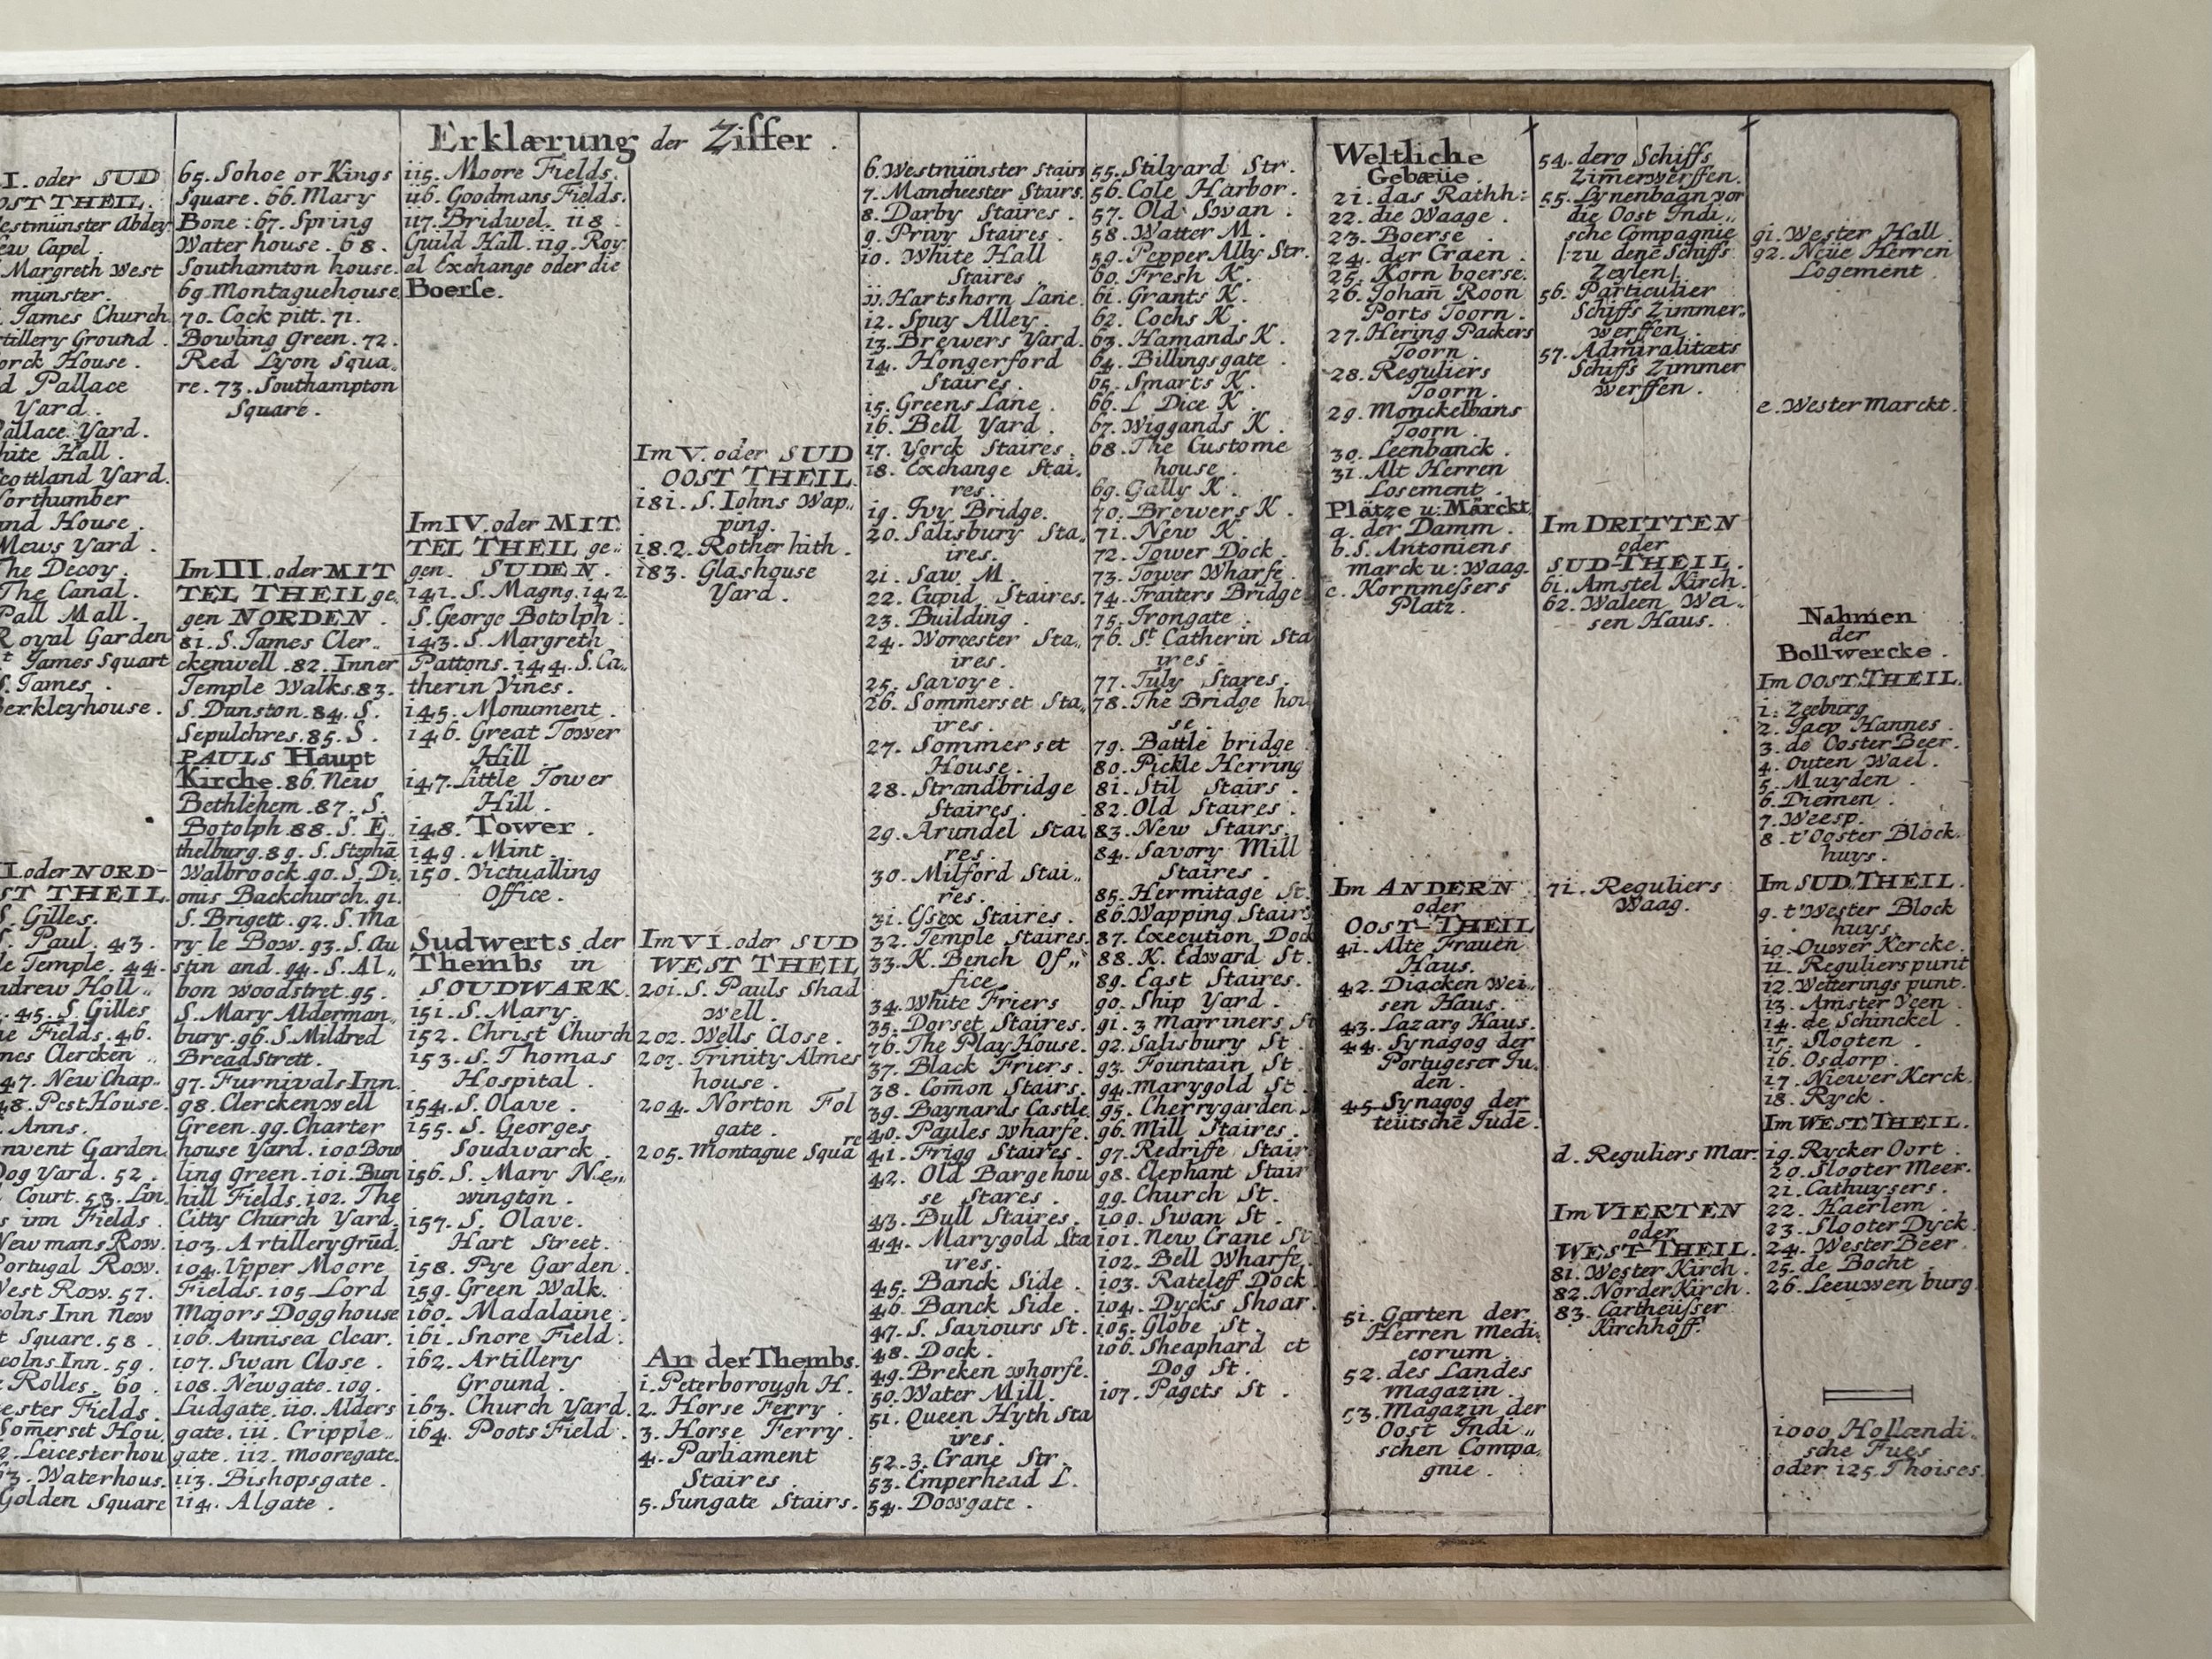 Erklærung der Ziffer.
I. oder SUD
OST THEIL.
estmünster Abbey
ew Capel.
Margreth West
münster.
James Church
rtillery Ground.
orck House.
d Pallace
Yard.
allace Yard.
hite Hall.
cottland Yard.
orthumber
and House.
Mews Yard.
he Decoy.
The Canal.
Pall Mall.
Royal Garden
t James Squart
S. James.
erkleyhouse.
I. oder NORD-
ST THEIL.
S. Gilles.
S. Paul. 43.
le Temple. 44.
ndrew Holl„
. 45. S. Gilles
he Fields. 46.
mes Clercken„
47. New Chap„
48. Pest House.
. Anns.
nvent Garden.
Dog Yard. 52.
Court. 53. Lin
s inn Fields.
Newmans Row.
Portugal Row.
West Row. 57.
colns Inn New
t Square. 58.
colns Inn. 59.
Rolles. 60.
ester Fields.
Som̅erset Hou.
2. Leicesterhou
63. Waterhous.
Golden Square
65. Sohoe or Kings
Square. 66. Mary
Bone. 67. Spring
Water house. 68.
Southamton house.
69 Montaguehouse
70. Cock pitt. 71.
Bowling Green. 72.
Red Lyon Squa„
re. 73. Southampton
Square.
Im III. oder MIT
TEL THEIL ge„
gen NORDEN.
81. S. James Cler„
ckenwell. 82. Inner
Temple Walks. 83.
S. Dunston. 84. S.
Sepulchres. 85. S.
PAULS Haupt
Kirche. 86. New
Bethlehem. 87. S.
Botolph. 88. S. E„
thelburg. 89. S. Stephā
Walbroock. 90. S. Di„
onis Backchurch. 91.
S. Brigett. 92. S. Ma
ry le Bow. 93. S. Au
stin and. 94. S. Al„
bon Woodstret. 95.
S. Mary Alderman„
bury. 96. S. Mildred
Bread Strett.
97. Furnivals Inn.
98. Clerckenwell
Green. 99. Charter
house Yard. 100 Bow
ling Green. 101. Bun
hill Fields. 102. The
Citty Church Yard.
103. Artillery Grūd.
104. Upper Moore
Fields. 105. Lord
Majors Dogghouse
106. Annisea Clear.
107. Swan Close.
108. Newgate. 109.
Ludgate. 110. Alders
gate. 111. Cripple„
gate. 112. Mooregate.
113. Bishopsgate.
114. Algate.
115. Moore Fields.
116. Goodmans Fields.
117. Bridwel. 118.
Guild Hall. 119. Roy.
al Exchange oder die
Boerse.
Im IV. oder MIT
TEL THEIL ge„
gen. SUDEN.
141. S. Magng. 142.
S. George Botolph.
143. S. Margreth
Pattons. 144. S. Ca„
therin Vines.
145. Monument.
146. Great Tower
Hill.
147. Little Tower
Hill.
148. Tower.
149. Mint.
150. Victualling
Office.
Sudwerts der
Thembs in
SOUDWARK.
151. S. Mary.
152. Christ Church
153. S. Thomas
Hospital.
154. S. Olave.
155. S. Georges
Soudwarck.
156. S. Mary Ne„
wington.
157. S. Olave.
Hart Street.
158. Pye Garden.
159. Green Walk.
160. Madalaine.
161. Snore Field.
162. Artillery
Ground.
163. Church Yard.
164. Poots Field.
Im V. oder SUD
OOST THEIL.
181. S. Iohns Wap„
ping.
182. Rotherhith.
183. Glashouse
Yard.
Im VI. oder SUD
WEST THEIL
201. S. Pauls Shad
well.
202. Wells Close.
203. Trinity Almes
house.
204. Norton Fol
gate.
205. Montague Squa re
An der Thembs.
1. Peterborough H.
2. Horse Ferry.
3. Horse Ferry.
4. Parliament
Staires.
5. Sungate Stairs.
6. Westmünster Stairs
7. Mancheester Stairs.
8. Darby Staires.
9. Privy Staires.
10. White Hall
Staires
11. Hartshorn Lane.
12. Spuy Alley.
13. Brewers Yard.
14. Hongerford
Staires.
15. Greens Lane.
16. Bell Yard.
17. Yorck Staires.
18. Exchange Stai„
res.
19. Ivy Bridge.
20. Salisbury Sta„
ires.
21. Saw M.
22. Cupid Staires.
23. Building.
24. Worcester Sta„
ires.
25. Savoye.
26. Sommerset Sta„
ires.
27. Sommerset
House.
28. Strandbridge
Staires.
29. Arundel Stai
res.
30. Milford Stai„
res.
31. Essex Staires.
32. Temple Staires.
33. K. Bench Of„
fice.
34. White Friers
35. Dorset Staires.
76. The Play House.
37. Black Friers.
38. Com̅on Stairs.
39. Baynards Castle.
40. Paules Wharfe.
41. Frigg Staires.
42. Old Bargehou
se Stares.
43. Bull Staires.
44. Marygold Sta
ires.
45. Banck Side.
46. Banck Side.
47. S. Saviours St.
48. Dock.
49. Breken whorfe.
50. Water Mill.
51. Queen Hyth Sta
ires.
52. 3. Crane Str.
53. Emperhead L.
54. Dowgate.
55. Stilyard Str.
56. Cole Harbor.
57. Old Swan.
58. Watter M.
59. Pepper Ally Str.
60. Fresh K.
61. Grants K.
62. Cochs K.
63. Hamands K.
64. Billingsgate.
65. Smarts K.
66. L Dice K.
67. Wiggands K.
68. The Custome
house.
69. Gally K.
70. Brewers K.
71. New K.
72. Tower Dock.
73. Tower Wharfe.
74. Traiters Bridge
75. Irongate.
76. St. Catherin Sta
ires.
77. July Stares.
78. The Bridge hou
se.
79. Battle bridge
80. Pickle Herring
81. Stil Stairs.
82. Old Staires.
83. New Stairs.
84. Savory Mill
Staires.
85. Hermitage St.
86. Wapping Stairs
87. Execution Dock
88. K. Edward St.
89. East Staires.
90. Ship Yard.
91. 3 Marriners St
92. Salisbury St.
93. Fountain St.
94. Marygold St.
95. Cherrygarden
96. Mill Staires.
97. Redriffe Stair
98. Elephant Stair
99. Church St.
100. Swan St.
101. New Crane St
102. Bell Wharfe.
103. Rateleff Dock
104. Dycks Shoar.
105. Globe St.
106. Sheaphard et
Dog St.
107. Pagets St.
Weltliche
Gebæüe.
21. das Rathh:
22. die Waage.
23. Boerse.
24. der Craen.
25. Korn boerse.
26. Johan̅ Roon
Ports Toorn.
27. Hering Packers
Toorn.
28. Reguliers
Toorn.
29. Monckelbans
Toorn.
30. Leenbanck.
31. Alt Herren
Losement.
Plätze u. Märckt
a. der Damm.
b. S. Antoniens
marck u: Waag.
c. Kornmessers
Platz.
Im ANDERN
oder
OOST-THEIL
41. Alte Frauen
Haus.
42. Diacken Wei„
sen Haus.
43. Lazarg Haus.
44. Synagog der
Portugeser Ju„
den.
45. Synagog der
teütsche̅ Jude̅.
51. Garten der
Herren Medi„
corum.
52. des Landes
Magazin.
53. Magazin der
Oost Indi„
schen Compa„
gnie.
54. dero Schiffs
Zim̅erwerffen.
55. Lynenbaan vor
die Oost Indi„
sche Compagnie
/: zu dene̅ Schiffs
Zeylen /.
56. Particulier
Schiffs Zimmer„
werffen.
57. Admiralitæts
Schiffs Zimmer
werffen.
Im DRITTEN
oder
SUD-THEIL.
61. Amstel Kirch.
62. Waleen Wei„
sen Haus.
71. Reguliers
Waag.
d. Reguliers Mar.
Im VIERTEN
oder
WEST-THEIL.
81. Wester Kirch.
82. Norder Kirch.
83. Cartheüsser
Kirchhoff.
91. Wester Hall.
92. Neüe Herren
Logement.
e. Wester Marckt.
Nahmen
der
Bollwercke.
Im OOST THEIL.
1. Zeeburg
2. Jaep Hannes.
3. de Ooster Beer.
4. Outen Wael.
5. Muyden.
6. Diemen.
7. Weesp.
8. t'Ooster Block„
huys.
Im SUD THEIL.
9. t'Wester Block
huys.
10. Ouwer Kercke.
11. Reguliers punt
12. Wetterings punt.
13. Amster Veen.
14. de Schinckel.
15. Slooten.
16. Osdorp.
17. Niewer Kerck.
18. Ryck.
Im WEST THEIL.
19. Rycker Oort.
20. Slooter Meer.
21. Cathuysers.
22. Haerlem.
23. Slooter Dyck.
24. Wester Beer.
25. de Bocht.
26. Leeuwen burg.
1000 Hollændi„
sche Fues
oder 125. Thoises.